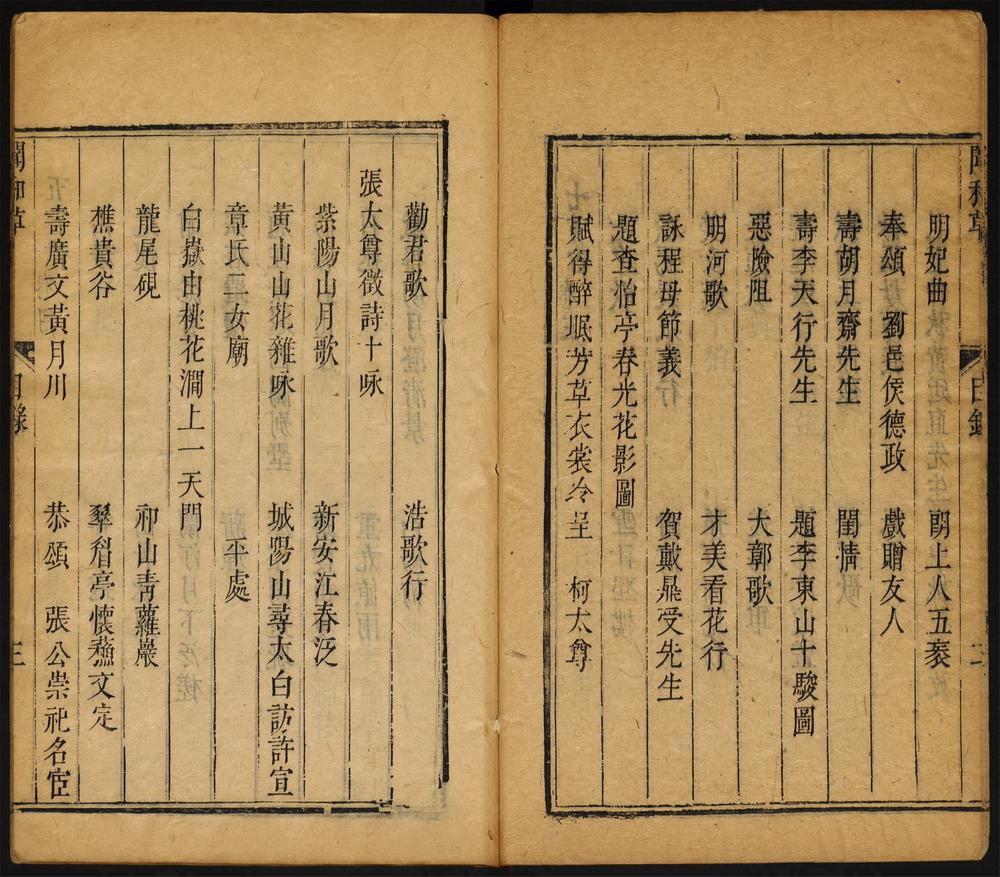 目錄
明妃曲 朗上人五袠
奉頌 劉邑侯德政 戲贈友人
壽胡月齋先生 閨情
壽李天行先生 題李東山十駿圖
惡險阻 大鄣歌
明河歌 才美看花行
詠程母節義 賀戴鼎受先生
題查怡亭春光花影圖
賦得醉眠芳草衣裳冷呈 柯太尊
勸君歌 浩歌行
張太尊徵詩十咏
紫陽山月歌 新安江春泛
黃山山花雜咏 城陽山尋太白訪許宣平處
章氏二女廟
白嶽由桃花澗上一天門
龍尾硯 祁山青蘿巖
樵貴谷 翠眉亭懷蘓文定
壽廣文黃月川 恭頌 張公崇祀名宦
目錄
三